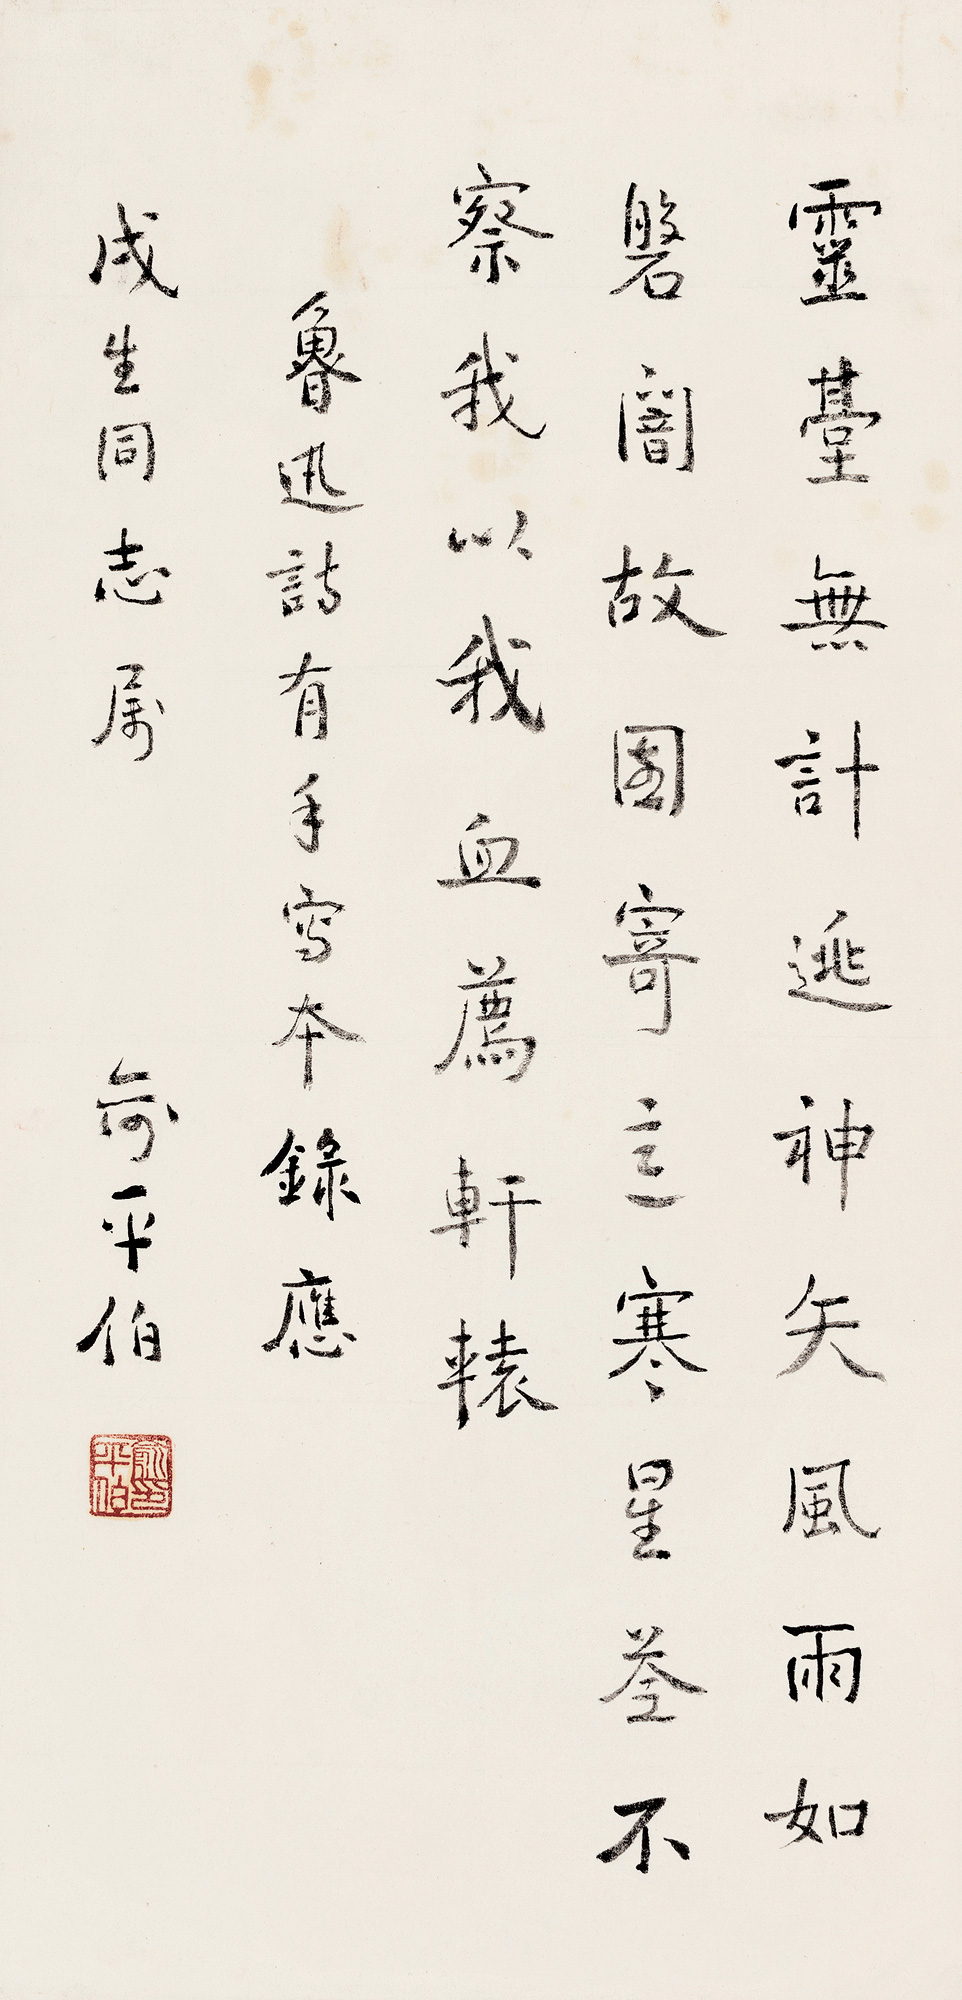 靈臺無計逃神矢風雨如
磐闇故園寄意寒星荃不
察我以我血薦軒轅
魯迅詩有手寫本錄應
成生同志属
俞平伯
俞平伯印